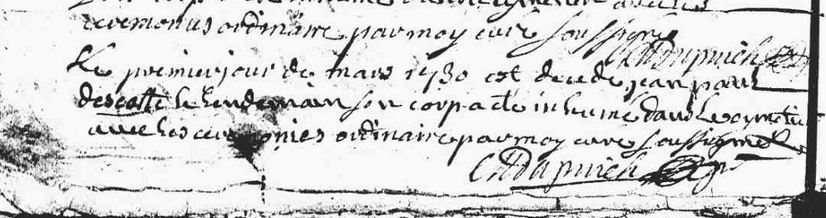 ceremonies ordinaire par moy curé soussigné
CH Dupuich
Le premier jour de mars 1730 est decedé jean paul
descatte le lendemain son corp a ete inhumé dans le cymetie
avec les ceremonies ordinaire par moy curé soussigné
CH Dupuich